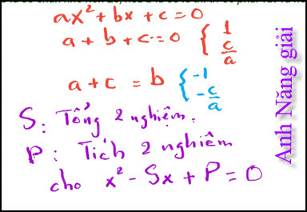 ax² + bx + c = 0
a + b + c = 0 { 1
c/a
a + c = b { -1
-c/a
S: Tổng 2 nghiệm.
P: Tích 2 nghiệm
cho x² - Sx + P = 0
Anh Năng giải